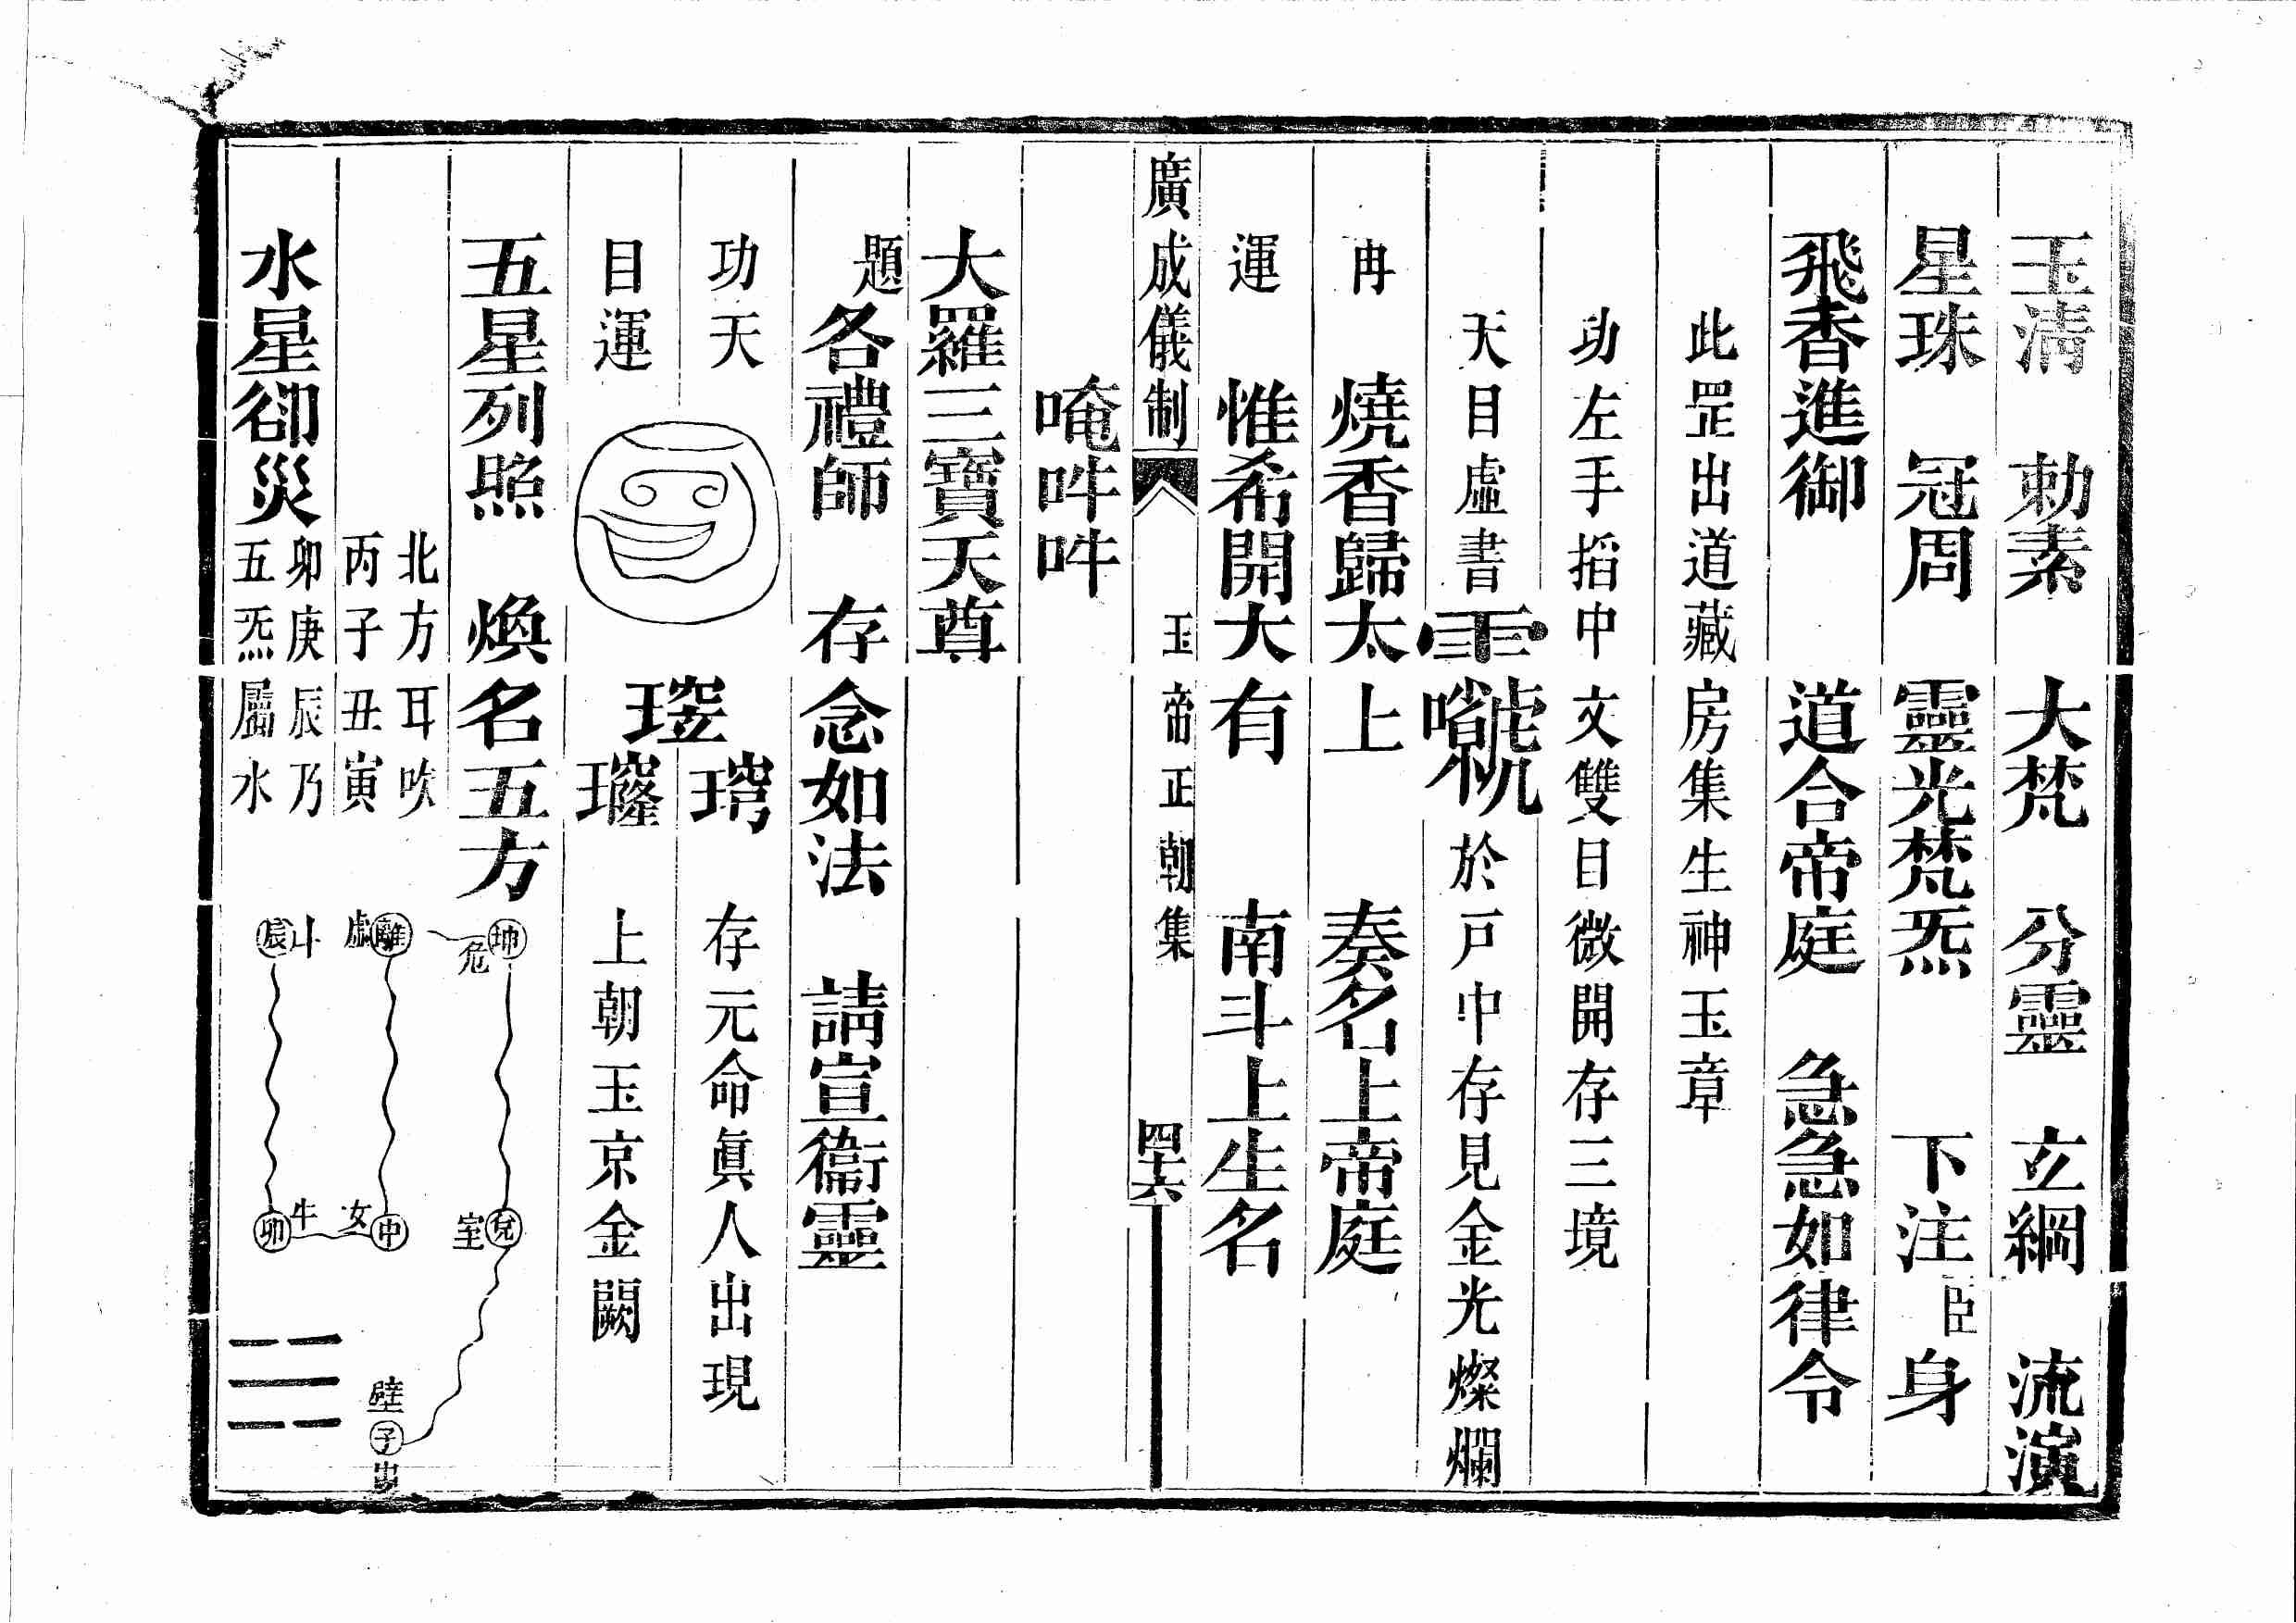 玉清 勅素 大梵 分靈 玄綱 流演
星珠 冠周 靈光梵炁 下注臣身
飛香進御 道合帝庭 急急如律令
此罡出道藏房集生神玉章
功左手搯中文雙目微開存三境
天目虛書 於戸中存見金光燦爛
冉 燒香歸太上 奏名上帝庭
運 惟希開大有 南斗上生名
廣成儀制 玉帝正朝集 四十六
唵吽吽
大羅三寶天尊
題各禮師 存念如法 請宣衞靈
功天 存元命眞人出現
目運 上朝玉京金闕
五星列照 煥名五方
北方耳吹
丙子丑寅
水星卻災
卯庚辰乃
五炁屬水
坤 危
兌 室
壁 子
離 虛
申 女
辰 斗
卯 牛